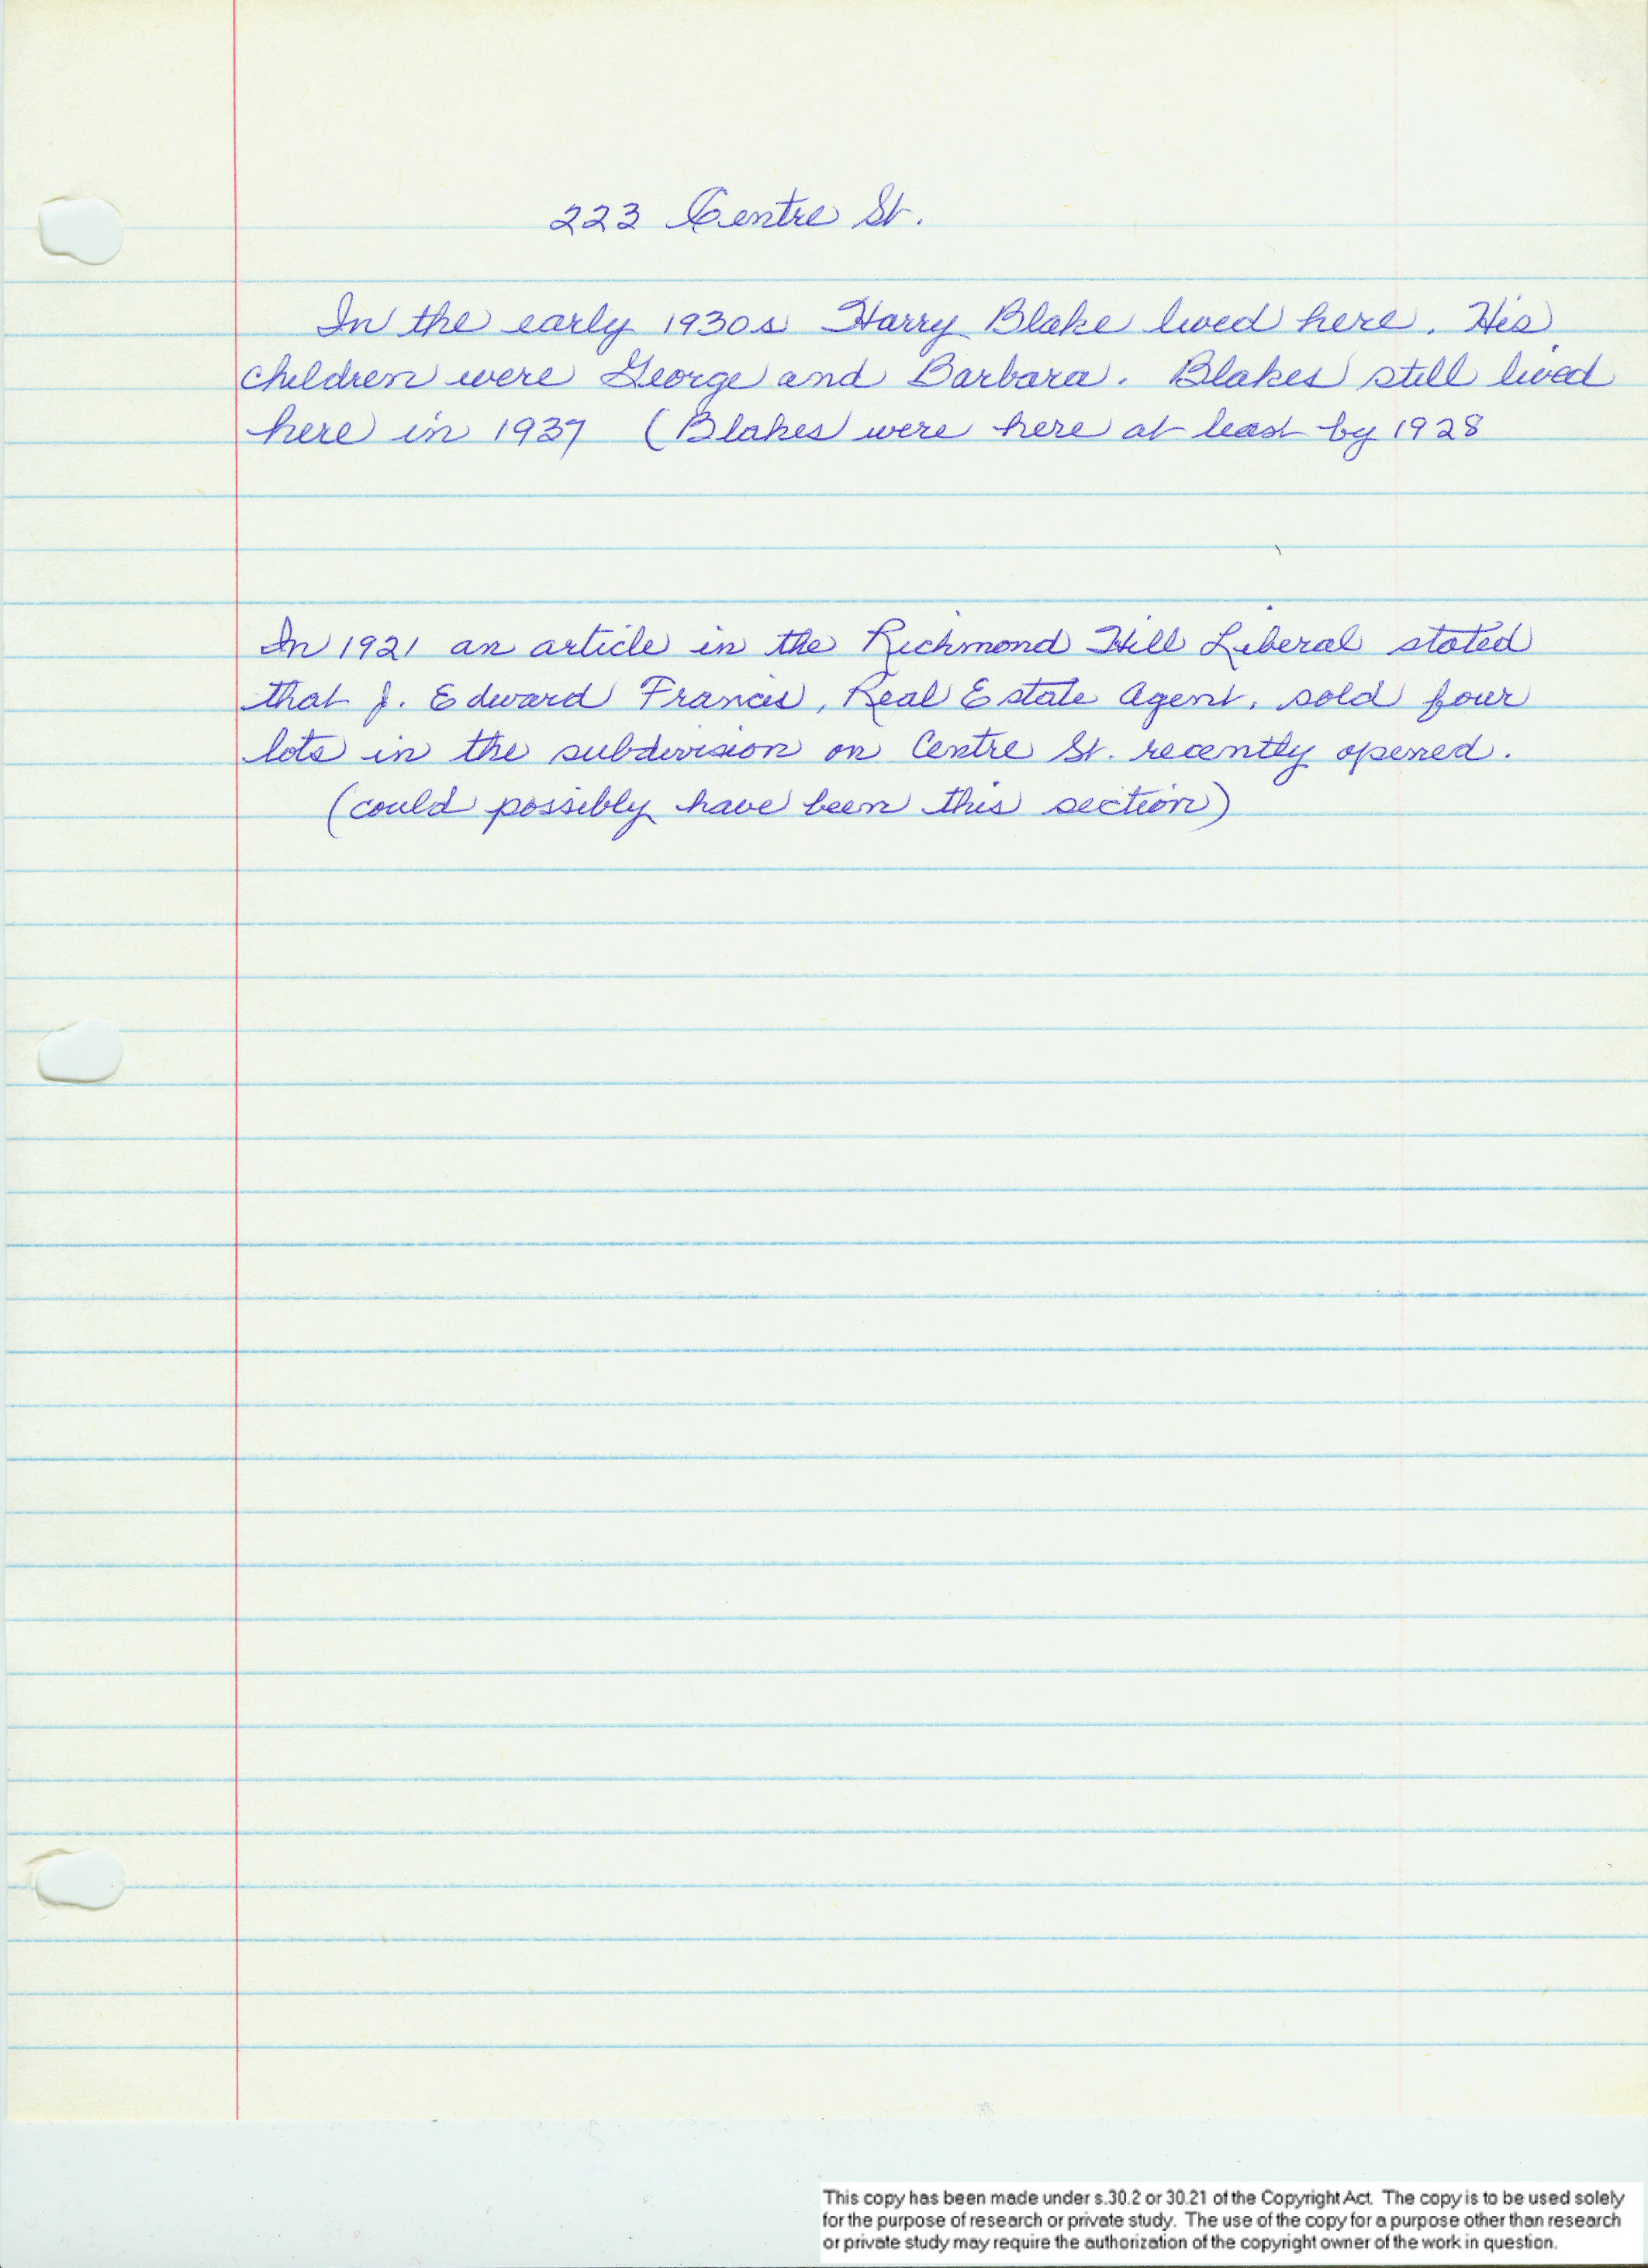 223 Centre St.
In the early 1930s Harry Blake lived here. His
children were George and Barbara. Blakes still lived
here in 1937 (Blakes were here at least by 1928
In 1921 an article in the Richmond Hill Liberal stated
that J. Edward Francis, Real Estate Agent, sold four
lots in the subdivision on Centre St. recently opened.
(could possibly have been this section)
This copy has been made under s.30.2 or 30.21 of the Copyright Act. The copy is to be used solely
for the purpose of research or private study. The use of the copy for a purpose other than research
or private study may require the authorization of the copyright owner of the work in question.